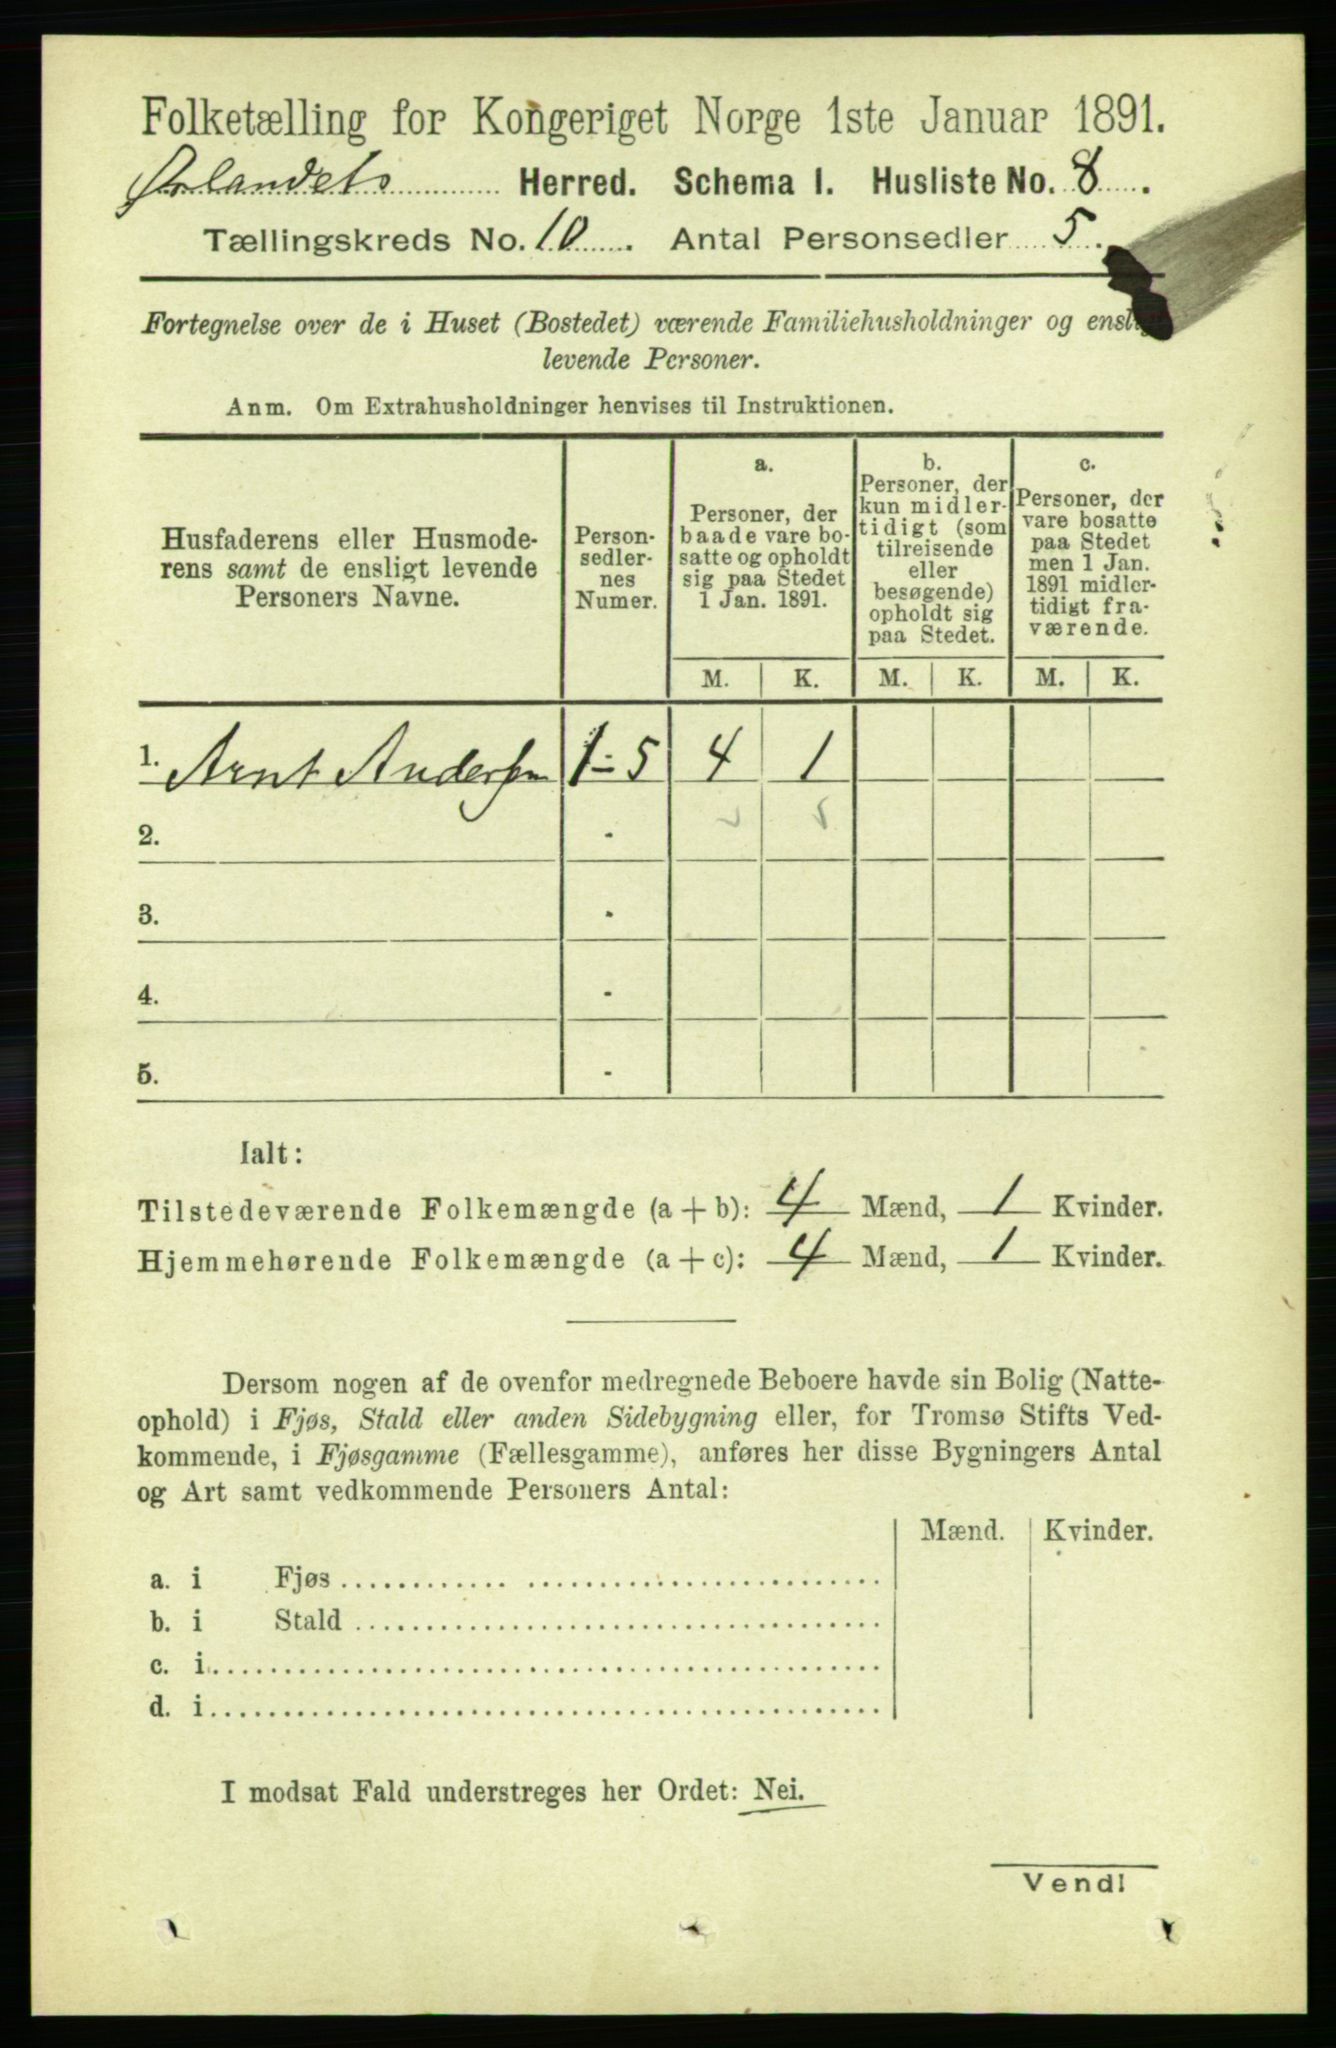 Folketælling for Kongeriget Norge 1ste Januar 1891.
Ørlandets Herred. Schema I. Husliste No. 8.
Tællingskreds No. 10. Antal Personsedler 5.
Fortegnelse over de i Huset (Bostedet) værende Familiehusholdninger og
levende Personer.
Anm. Om Extrahusholdninger henvises til Instruktionen.
Husfaderens eller Husmode-
rens samt de ensligt levende
Personers Navne.
Person-
sedler-
nes
Numer.
a.
Personer, der
baade vare bo-
satte og opholdt
sig paa Stedet
1 Jan. 1891.
b.
Personer, der
kun midler-
tidigt (som
tilreisende
eller
besøgende)
opholdt sig
paa Stedet.
c.
Personer, der
vare bosatte
paa Stedet
men 1 Jan.
1891 midler-
tidigt fra-
værende.
M. K. M. K. M. K.
1. Arnt Andersen 1-5 4 1
2. -
3. -
4. -
5. -
Ialt:
Tilstedeværende Folkemængde (a + b): 4 Mænd, 1 Kvinder.
Hjemmehørende Folkemængde (a + c): 4 Mænd, 1 Kvinder.
Dersom nogen af de ovenfor medregnede Beboere havde sin Bolig (Natte-
ophold) i Fjøs, Stald eller anden Sidebygning eller, for Tromsø Stifts Ved-
kommende, i Fjøsgamme (Fællesgamme), anføres her disse Bygningers Antal
og Art samt vedkommende Personers Antal:
Mænd. Kvinder.
a. i Fjøs
b. i Stald
c. i
d. i
I modsat Fald understreges her Ordet: Nei.
Vend!